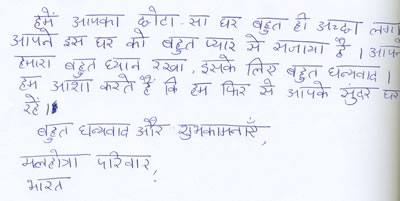 हमें आपका छोटा-सा घर बहुत ही अच्छा लगा
आपने इस घर को बहुत प्यार से सजाया है । आपने
हमारा बहुत ध्यान रखा, इसके लिए बहुत धन्यवाद ।
हम आशा करते हैं कि हम फिर से आपके सुंदर घर
रहें ।
बहुत धन्यवाद और शुभकामनाएँ,
मलहोत्रा परिवार,
भारत